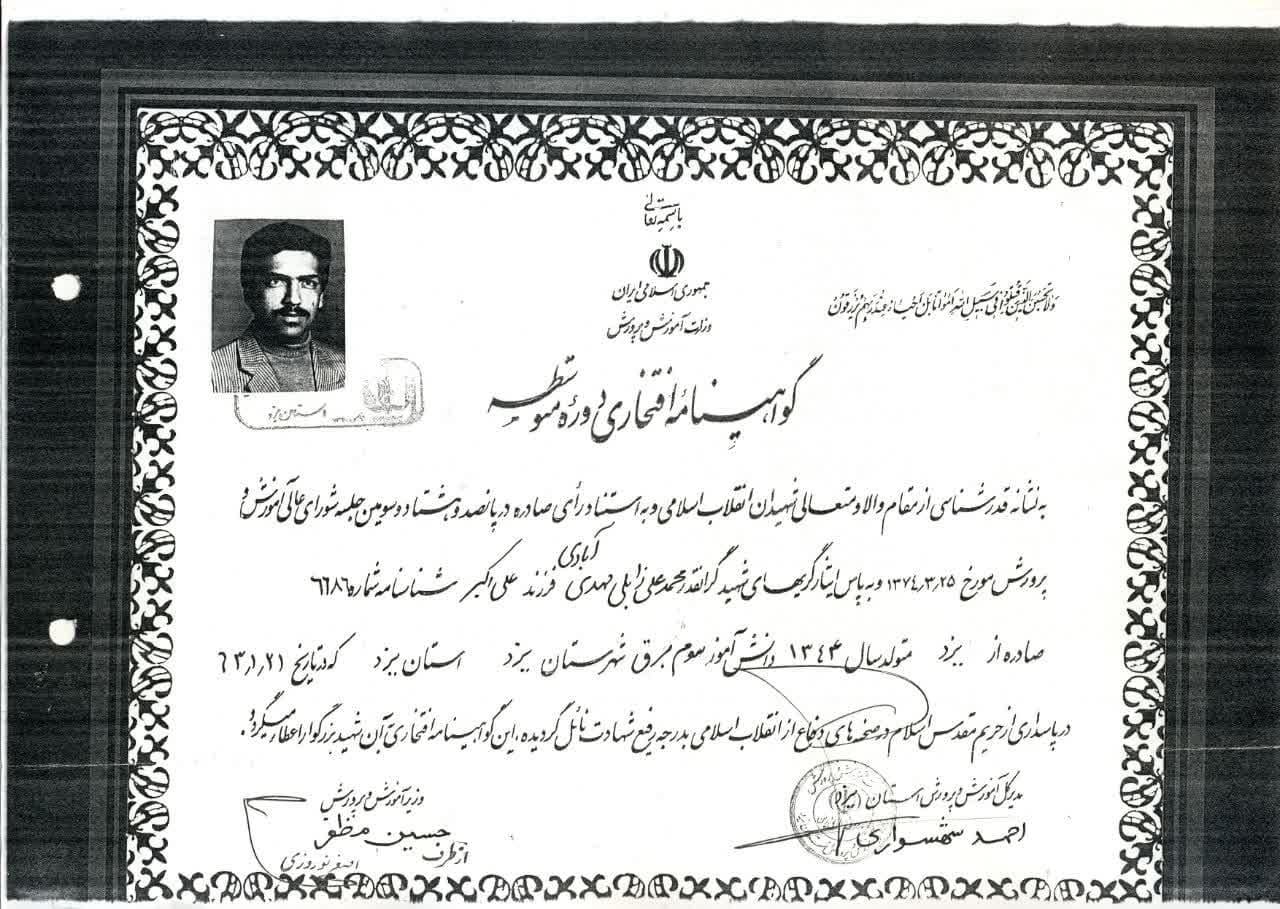 باسمه تعالی
جمهوری اسلامی ایران
وزارت آموزش و پرورش
ولا تحسبن الذین قتلوا فی سبیل الله امواتا بل احیاء عند ربهم یرزقون
گواهینامهٔ افتخاری دورهٔ متوسطه
استان یزد
به نشانه قدرشناسی از مقام والا و متعالی شهیدان انقلاب اسلامی و به استناد رأی صادره در پانصد و هشتاد و سومین جلسه شورای عالی آموزش و
پرورش مورخ ۱۳۷۴٫۳٫۲۵ و به پاس ایثارگریهای شهید گرانقدر محمد علی زابلی مهدی آبادی فرزند علی اکبر شناسنامه شماره ۶۶۸۶
صادره از یزد متولد سال ۱۳۴۴ دانش آموز سوم برق شهرستان یزد استان یزد که در تاریخ ۶۳٫۱٫۲۱
در پاسداری از حریم مقدس اسلام در صحنه های دفاع از انقلاب اسلامی بدرجه رفیع شهادت نائل گردیده، این گواهینامه افتخاری به آن شهید بزرگوار اعطا میگردد.
مدیر کل آموزش و پرورش استان (یزد)
احمد شهسواری
وزیر آموزش و پرورش
حسین مظفر
از طرف
اصغر نوروزی